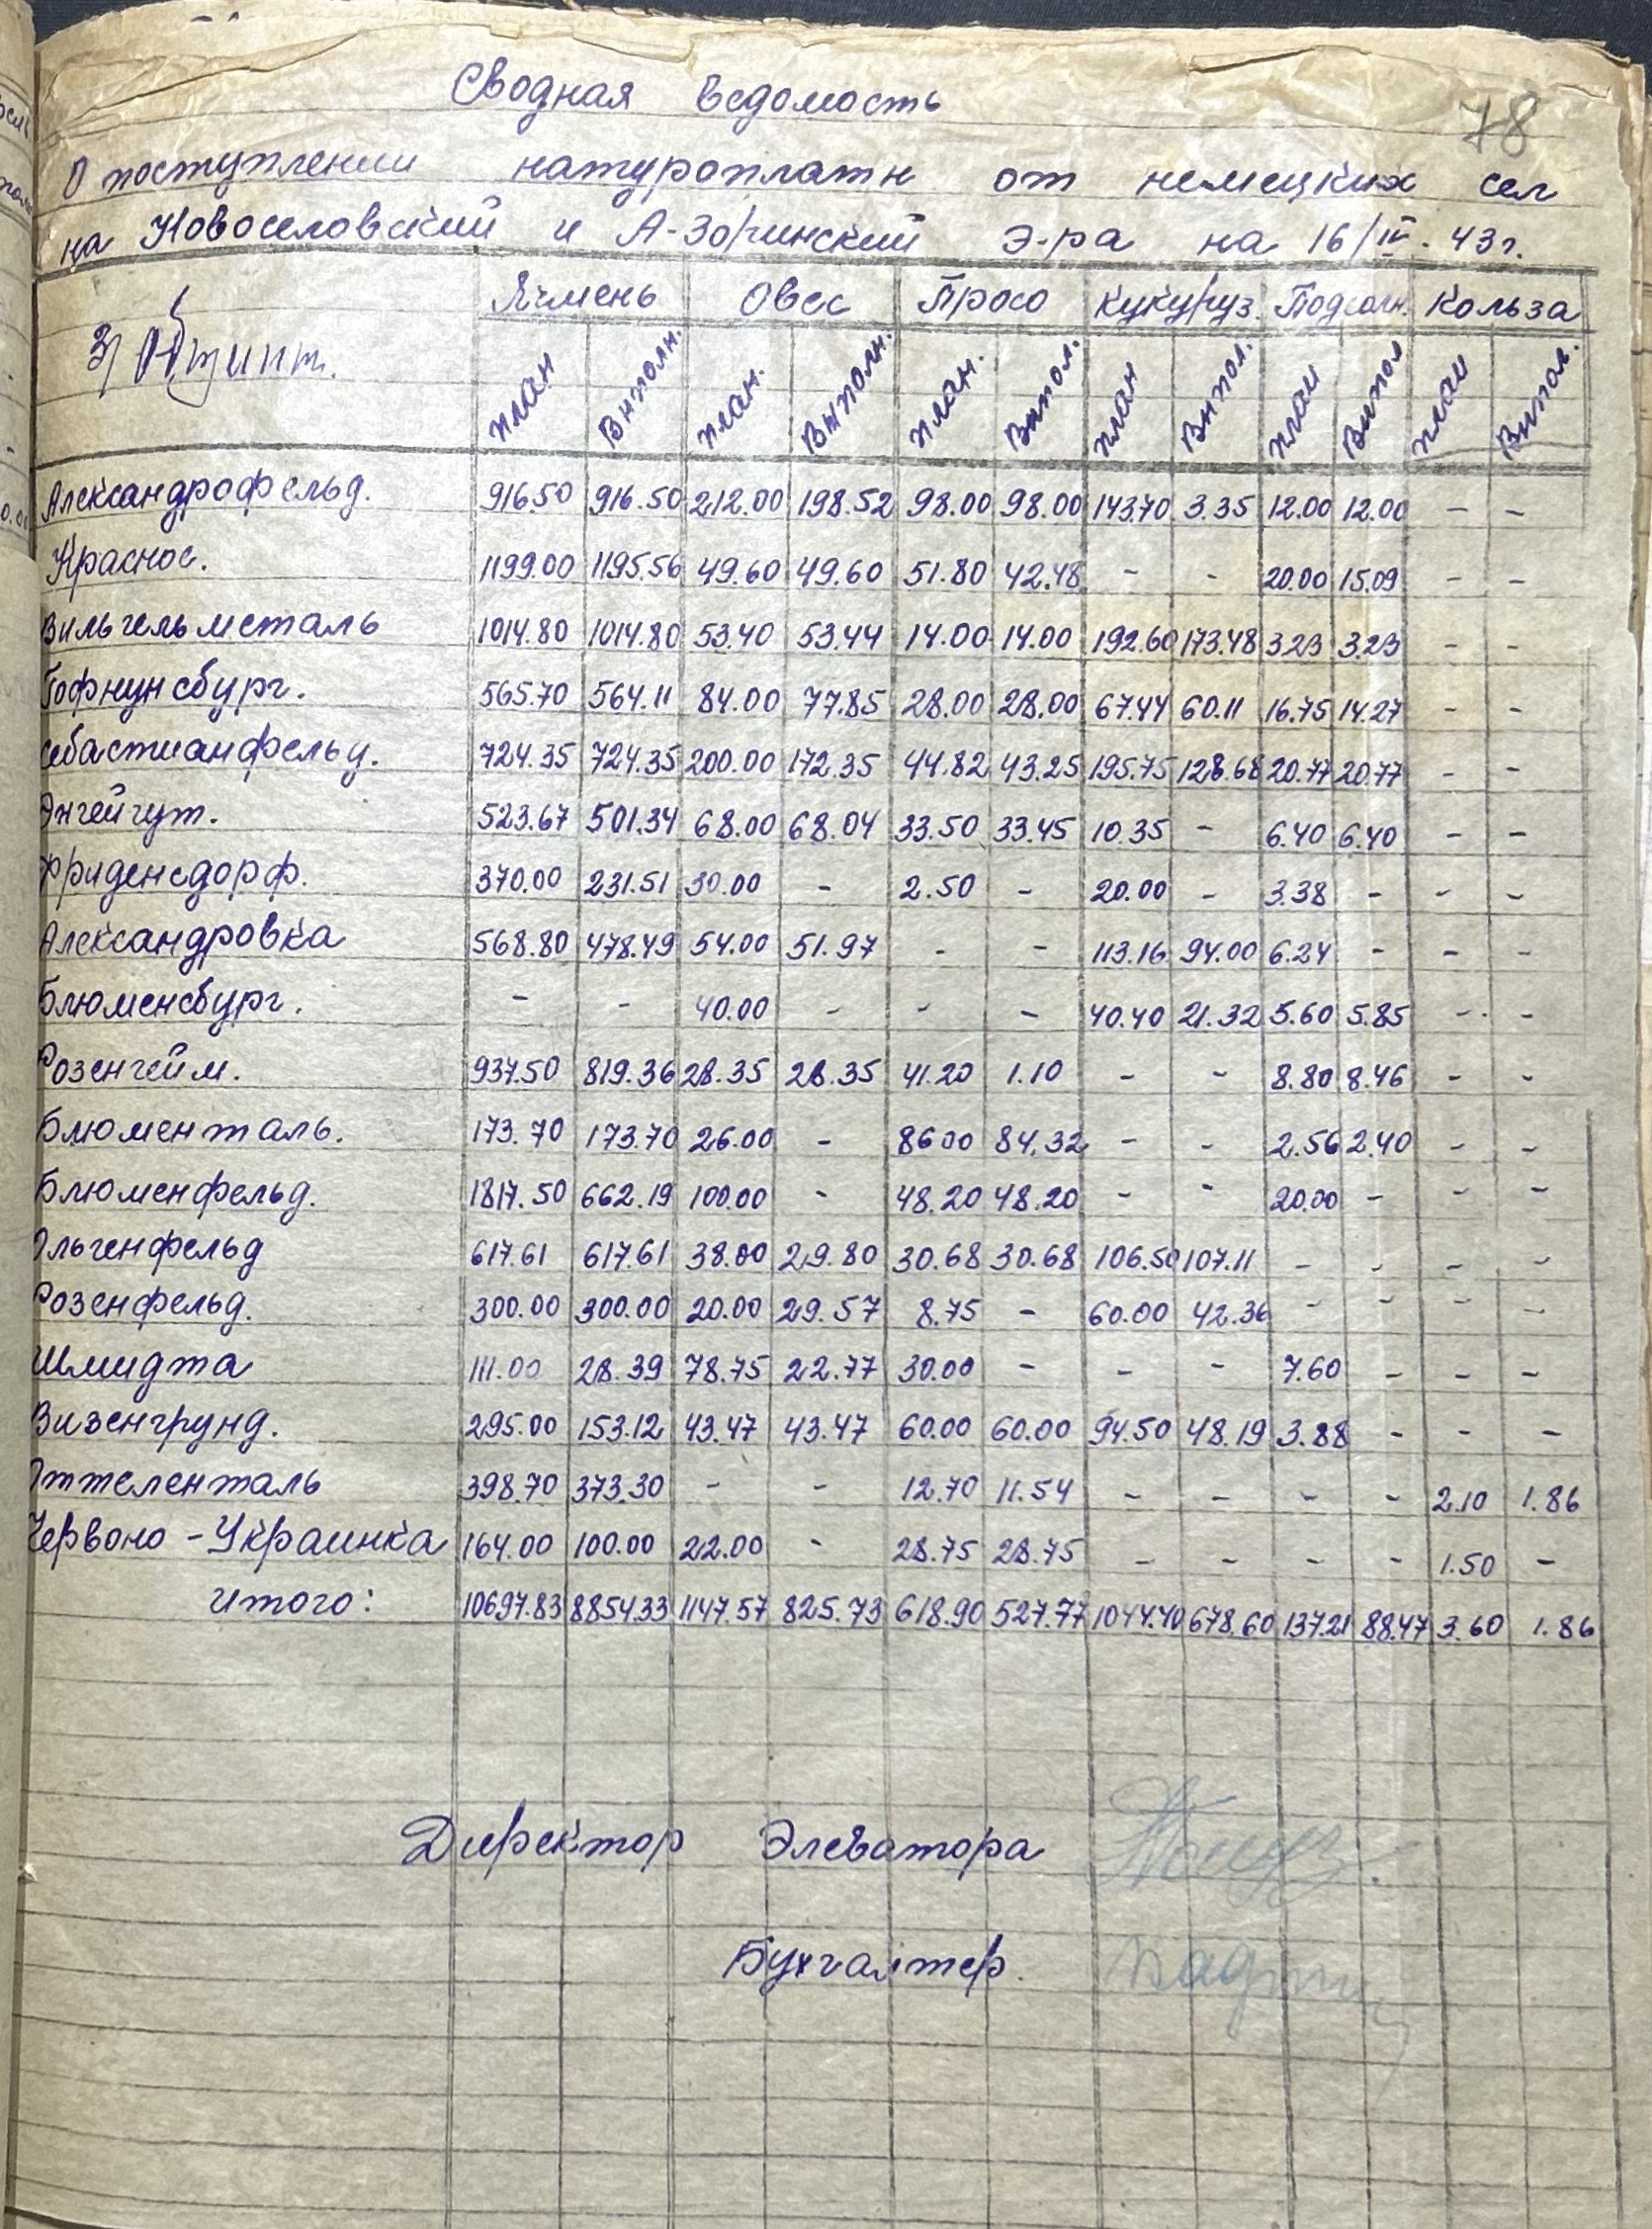 78
Сводная ведомость
О поступлении натуроплаты от немецких сел
на Новоселовский и А-Зоринский Э-ра на 16/IV. 43г.
Ячмень Овес Просо Кукуруз. Подсолн. Кольза
план Выполн. план. Выполн. план. Выпол. план Выпол. план Выпол план Выпол.
Александрофельд. 916.50 916.50 212.00 198.52 98.00 98.00 143.70 3.35 12.00 12.00 - -
Краснос. 1199.00 1195.56 49.60 49.60 51.80 42.48 - - 20.00 15.09 - -
Вильгельмсталь 1014.80 1014.80 53.40 53.44 14.00 14.00 192.60 173.48 3.23 3.23 - -
Гофнунсбург. 565.70 564.11 84.00 77.85 28.00 28.00 67.44 60.11 16.75 14.27 - -
Себастианфельд. 724.35 724.35 200.00 172.35 44.82 43.25 195.75 128.68 20.77 20.77 - -
Энгейгут. 523.67 501.34 68.00 68.04 33.50 33.45 10.35 - 6.40 6.40 - -
Фриденсдорф. 370.00 231.51 30.00 - 2.50 - 20.00 - 3.38 - - -
Александровка 568.80 478.49 54.00 51.97 - - 113.16 94.00 6.24 - - -
Блюменсбург. - - 40.00 - - - 40.40 21.32 5.60 5.85 - -
Розенгейм. 937.50 819.36 28.35 28.35 41.20 1.10 - - 8.80 8.46 - -
Блюменталь. 173.70 173.70 26.00 - 86 00 84.32 - - 2.56 2.40 - -
Блюменфельд. 1817.50 662.19 100.00 - 48.20 48.20 - - 20.00 - - -
Ольгенфельд 617.61 617.61 38.00 29.80 30.68 30.68 106.50 107.11 - - - -
Розенфельд. 300.00 300.00 20.00 29.57 8.75 - 60.00 42.36 - - - -
Шмидта 111.00 28.39 78.75 22.77 30.00 - - - 7.60 - - -
Визенгрунд. 295.00 153.12 43.47 43.47 60.00 60.00 94.50 48.19 3.88 - - -
Оттеленталь 398.70 373.30 - - 12.70 11.54 - - - - 2.10 1.86
Червоно-Украинка 164.00 100.00 22.00 - 28.75 28.75 - - - - 1.50 -
Итого: 10697.83 8854.33 1147.57 825.73 618.90 527.77 1044.40 678.60 137.21 88.47 3.60 1.86
Директор Элеватора
Бухгалтер.